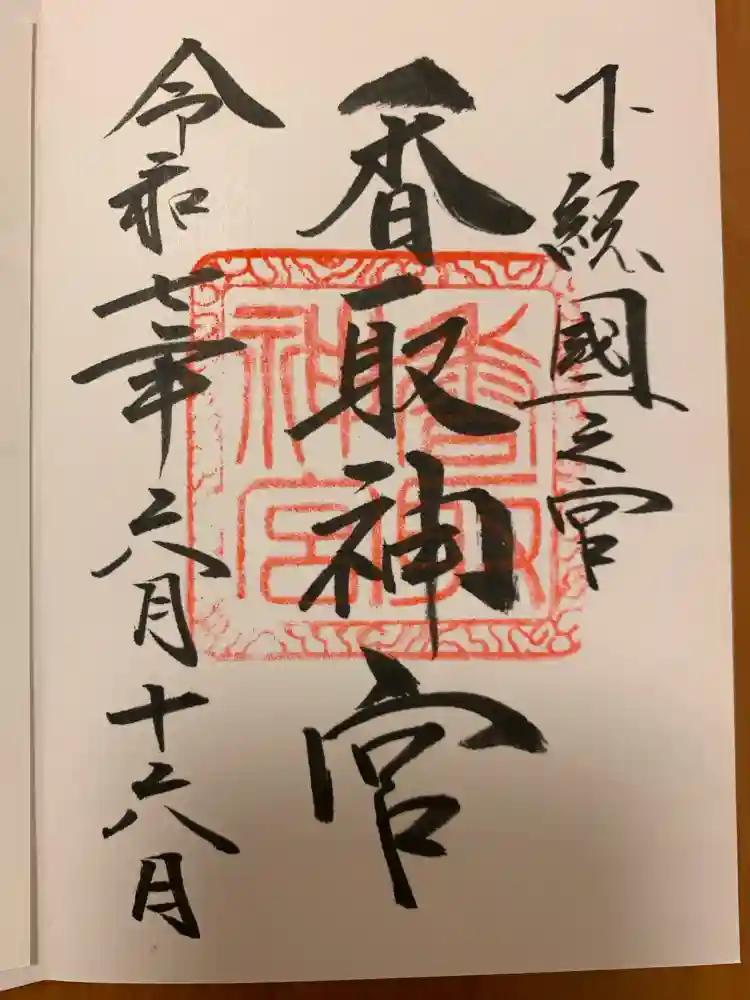 下総國一之宮
香取神宮
令和七年六月十六月
香取神宮